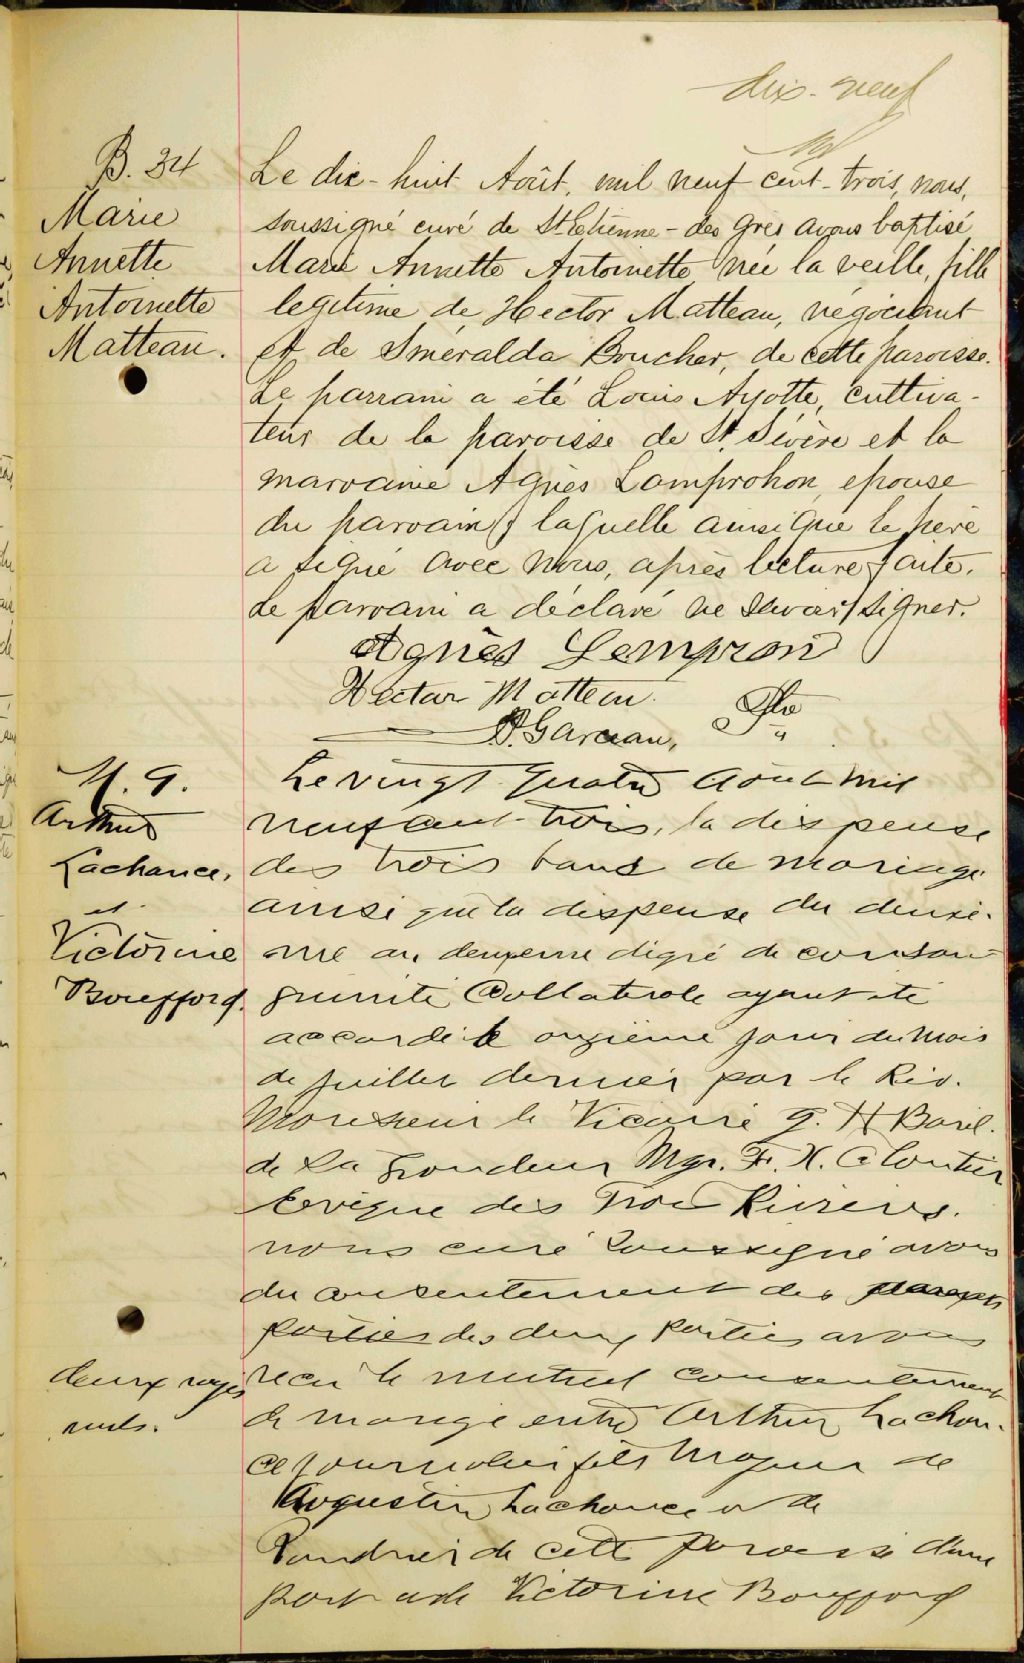 dix-neuf
B. 34
Marie
Annette
Antoinette
Matteau.
Le dix-huit Août, mil neuf cent-trois, nous,
soussigné curé de St Etienne-des Grès avons baptisé
Marie Annette Antoinette née la veille, fille
legitime de Hector Matteau, négociant
et de Sméralda Boucher, de cette paroisse.
Le parrain a été Louis Ayotte, cultiva-
teur de la paroisse de St. Sévère et la
marraine Agnès Lamprohon, epouse
du parrain, laquelle ainsi que le père
a signé avec nous, après lecture faite.
Le parrain a déclaré ne savoir signer.
Agnès Lempron
Hector Matteau.
Ptre
M. 9.
Arthur
Lachance,
et
Victorine
Boufford.
Le vingt quatre Août mil
neuf cent-trois, la dispense
des trois bans de mariage
ainsi que la dispense du deuxiè-
me au deuxieme dégré de consan-
guinité Collaterale ayant été
accordé le onzième jour du mois
de juillet dernier par le Rév.
Monsieur le Vicaire G. H Baril.
de Sa Grandeur Mgr. F. X. Cloutier
Evêque des Trois Rivières.
nous curé Soussigné avons
du consentement des parents
parties des deux parties avons
recu le mutuel consentement
de mariage entre Arthur Lachan-
ce journalier fils Majeur de
Augustin Lachance et de
de cette paroisse d'une
part et de Victorine Boufford
deux rayés
nuls.